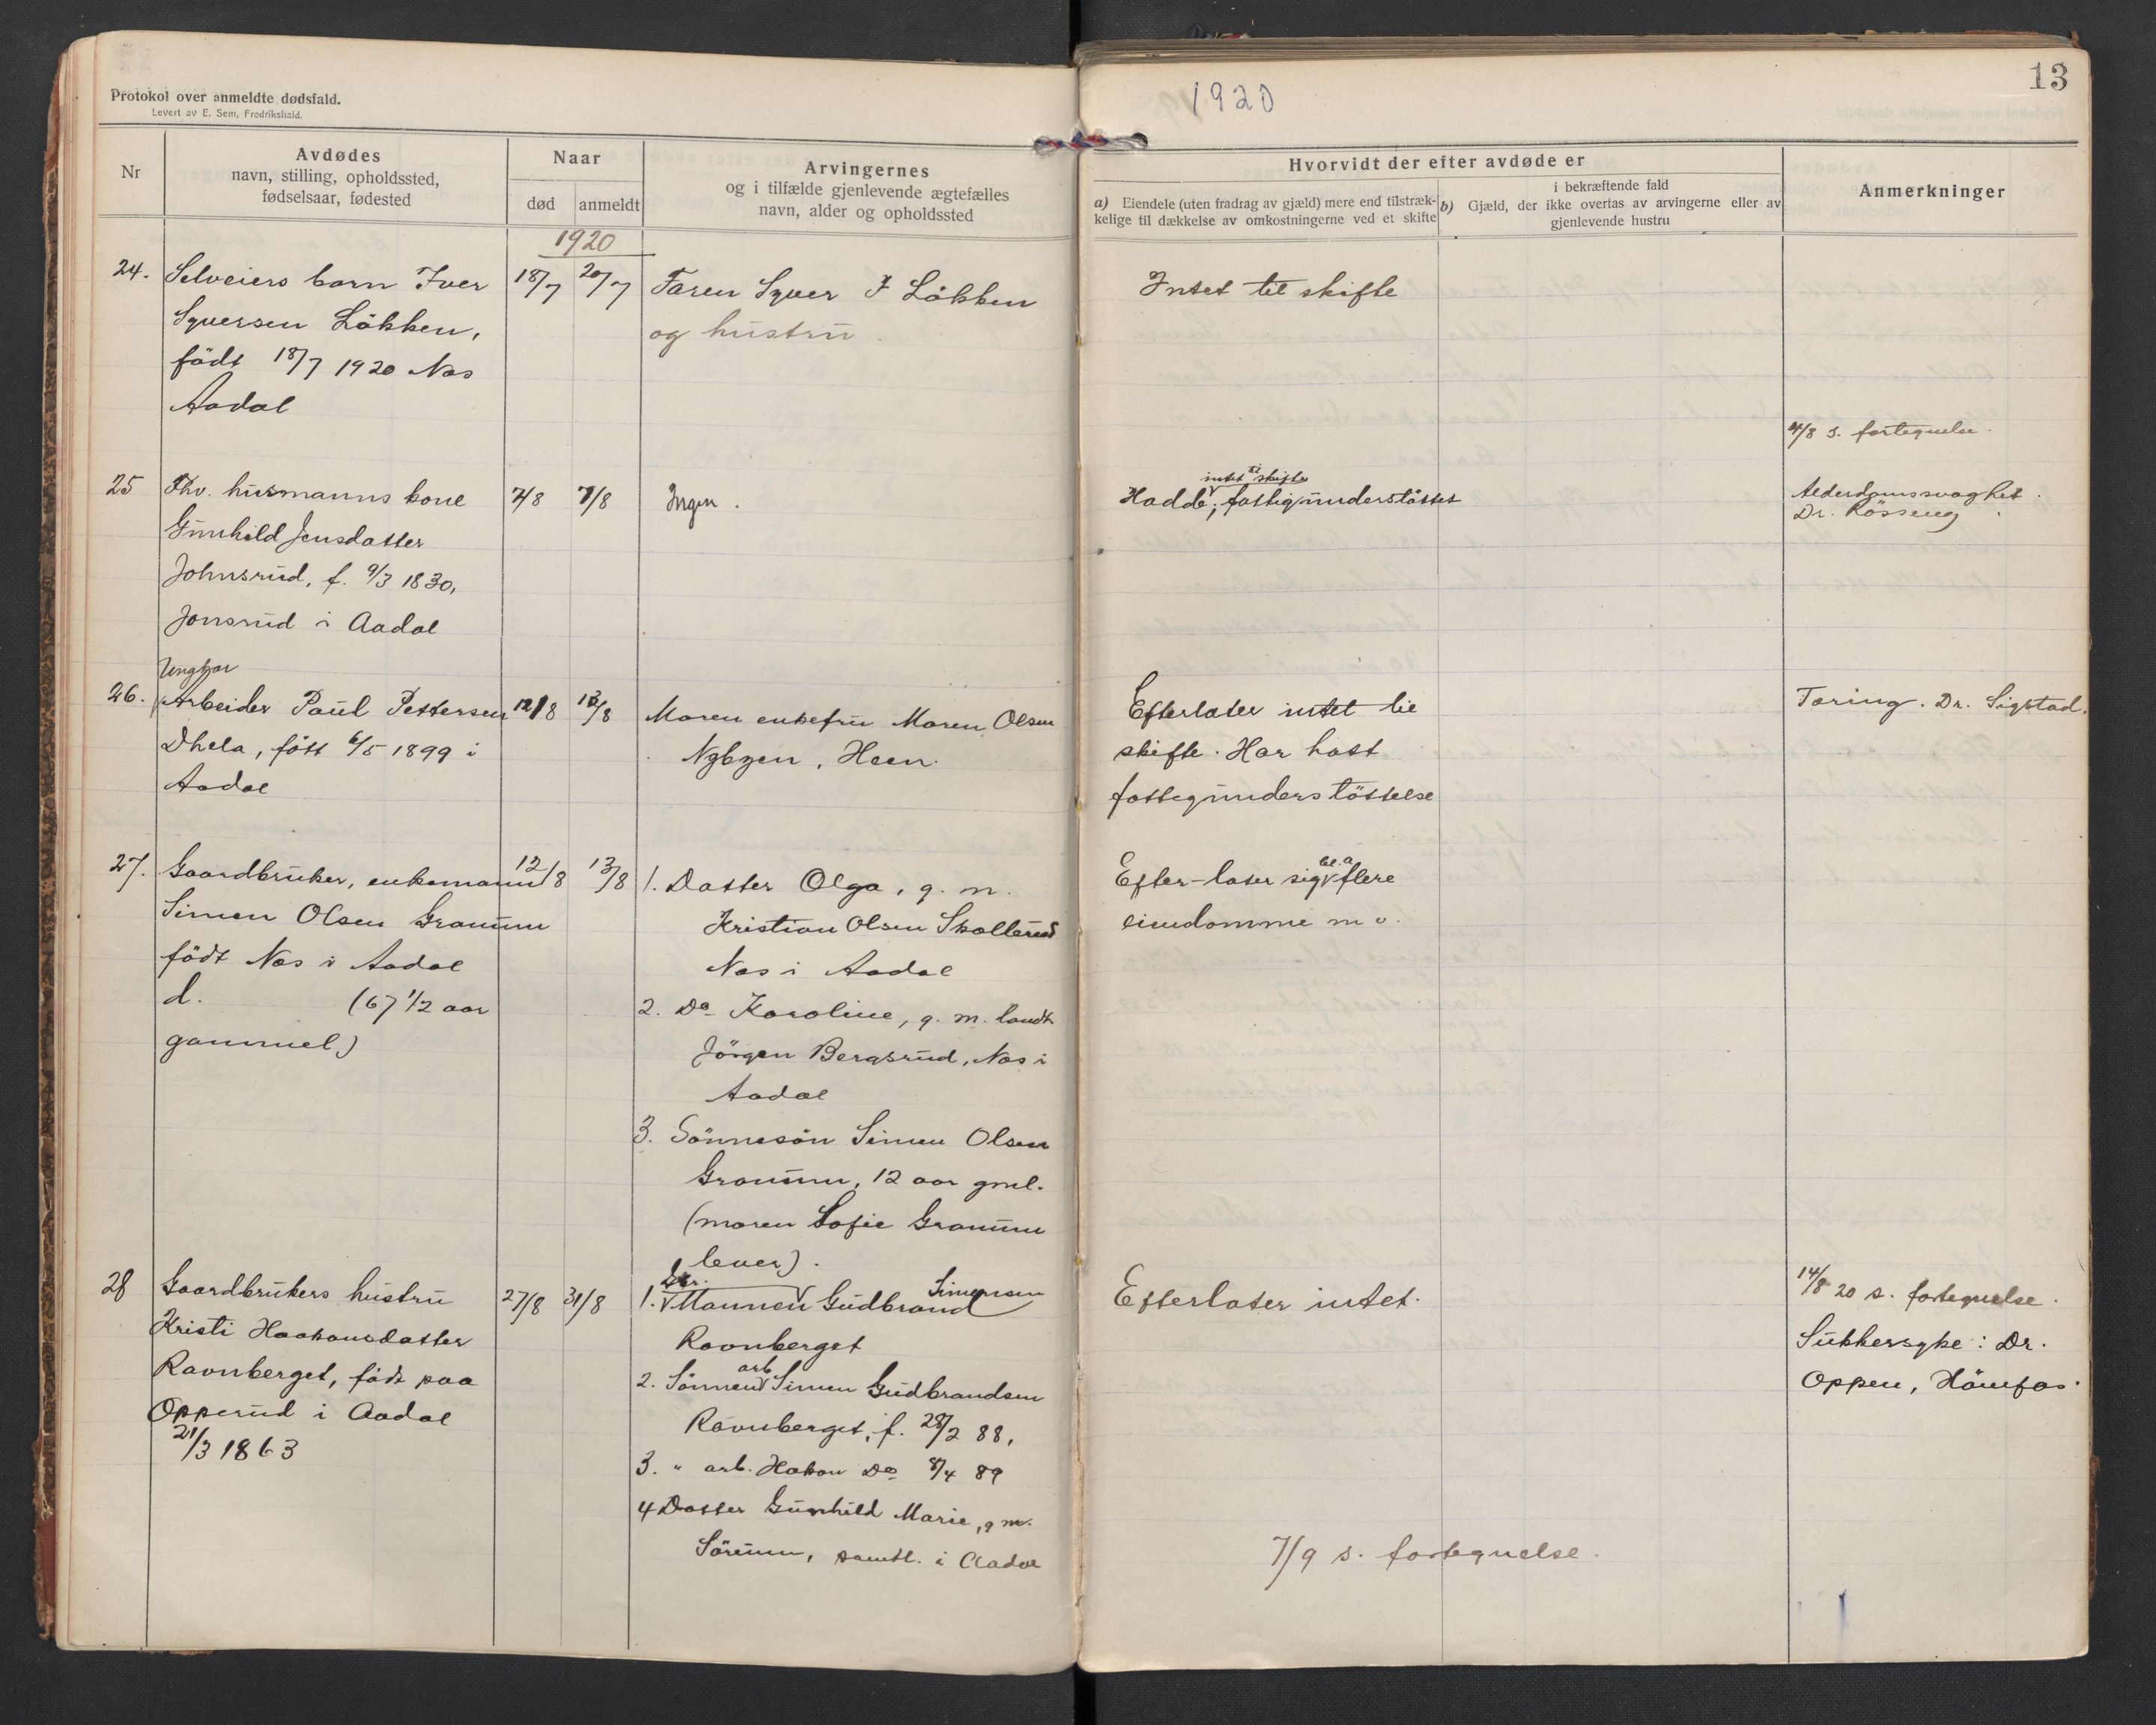 Protokol over anmeldte dødsfald.
Levert av E. Sem, Fredrikshald.
Nr
Avdødes
navn, stilling, opholdssted,
fødselsaar, fødested
Naar
død
anmeldt
Arvingernes
og i tilfælde gjenlevende ægtefælles
navn, alder og opholdssted
1920
24.
Selveiers barn Iver
Syversen Løkken,
født 18/7 1920 Nes
Aadal
18/7
20/7
Faren Syver I Løkken
og hustru
25
Fhv. husmanns kone
Gunhild Jensdatter
Johnsrud, f. 9/3 1830,
Jonsrud i Aadal
7/8
Ingen.
26.
Ungkar
Arbeider Paul Pettersen
født 6/5 1899 i
Aadal
12/8
13/8
Moren enkefru Maren Olsen
Heen.
27.
Gaardbruker, enkemann
Simen Olsen Gramum
født Nes i Aadal
d. (67 1/2 aar
gammel)
12/8
13/8
1. Datter Olga, g. m.
Kristian Olsen Skollerud
Nes i Aadal
2. Do Karoline, g. m. landh
Jörgen Bergsrud, Nes i
Aadal
3. Sönnesön Simen Olsen
Gramum, 12 aar gml.
(moren Sofie Gramum
lever).
28
Gaardbrukers hustru
Kristi Haakonsdatter
Ravnberget, født paa
Opperud i Aadal
21/3 1863
27/8
31/8
1. Mannen Gudbrand Simensen
Ravnberget
2. Sönnen arb Simen Gudbrandsen
Ravnberget, f. 28/2 88,
3. " arb. Hakon Do 8/4 89
4 Datter Gunhild Marie, g m.
samtl. i Aadal
1920
13
Hvorvidt der efter avdøde er
a) Eiendele (uten fradrag av gjæld) mere end tilstræk-
kelige til dækkelse av omkostningerne ved et skifte
i bekræftende fald
b) Gjæld, der ikke overtas av arvingerne eller av
gjenlevende hustru
Anmerkninger
Intet til skifte
4/8 s. fortegnelse.
intet til skifte
Hadde; fattigunderstöttet
Alderdomssvaghet.
Dr.
Efterlater intet til
skifte. Har hatt
fattigunderstöttelse
Tæring. Dr. Sigstad.
Efter-later sig bl.a flere
eiendomme m v.
14/8 20 s. fortegnelse.
Efterlater intet.
Sukkersyke: Dr.
Oppen, Hönefos.
7/9 s. fortegnelse.